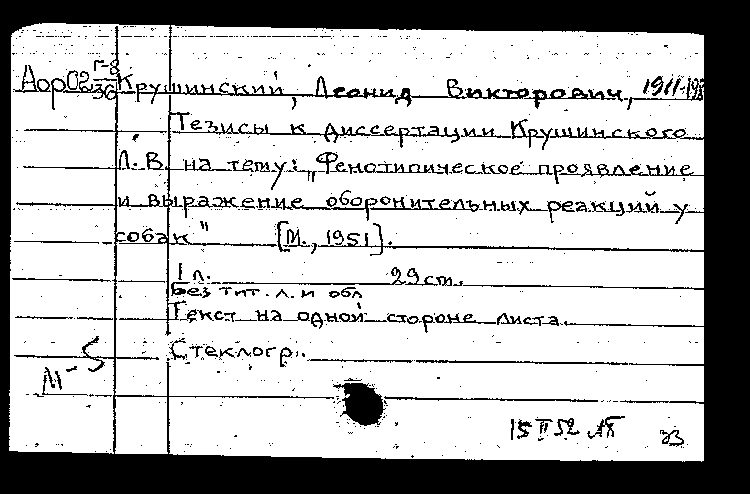 Аор02 Г-8/36 Крушинский, Леонид Викторович, 1911-198
Тезисы к диссертации Крушинского
Л.В. на тему: „Фенотипическое проявление
и выражение оборонительных реакций у
собак" [М., 1951].
1 л. 29 см.
Без тит. л. и обл.
Текст на одной стороне листа.
Стеклогр.
М-5
15 II 52